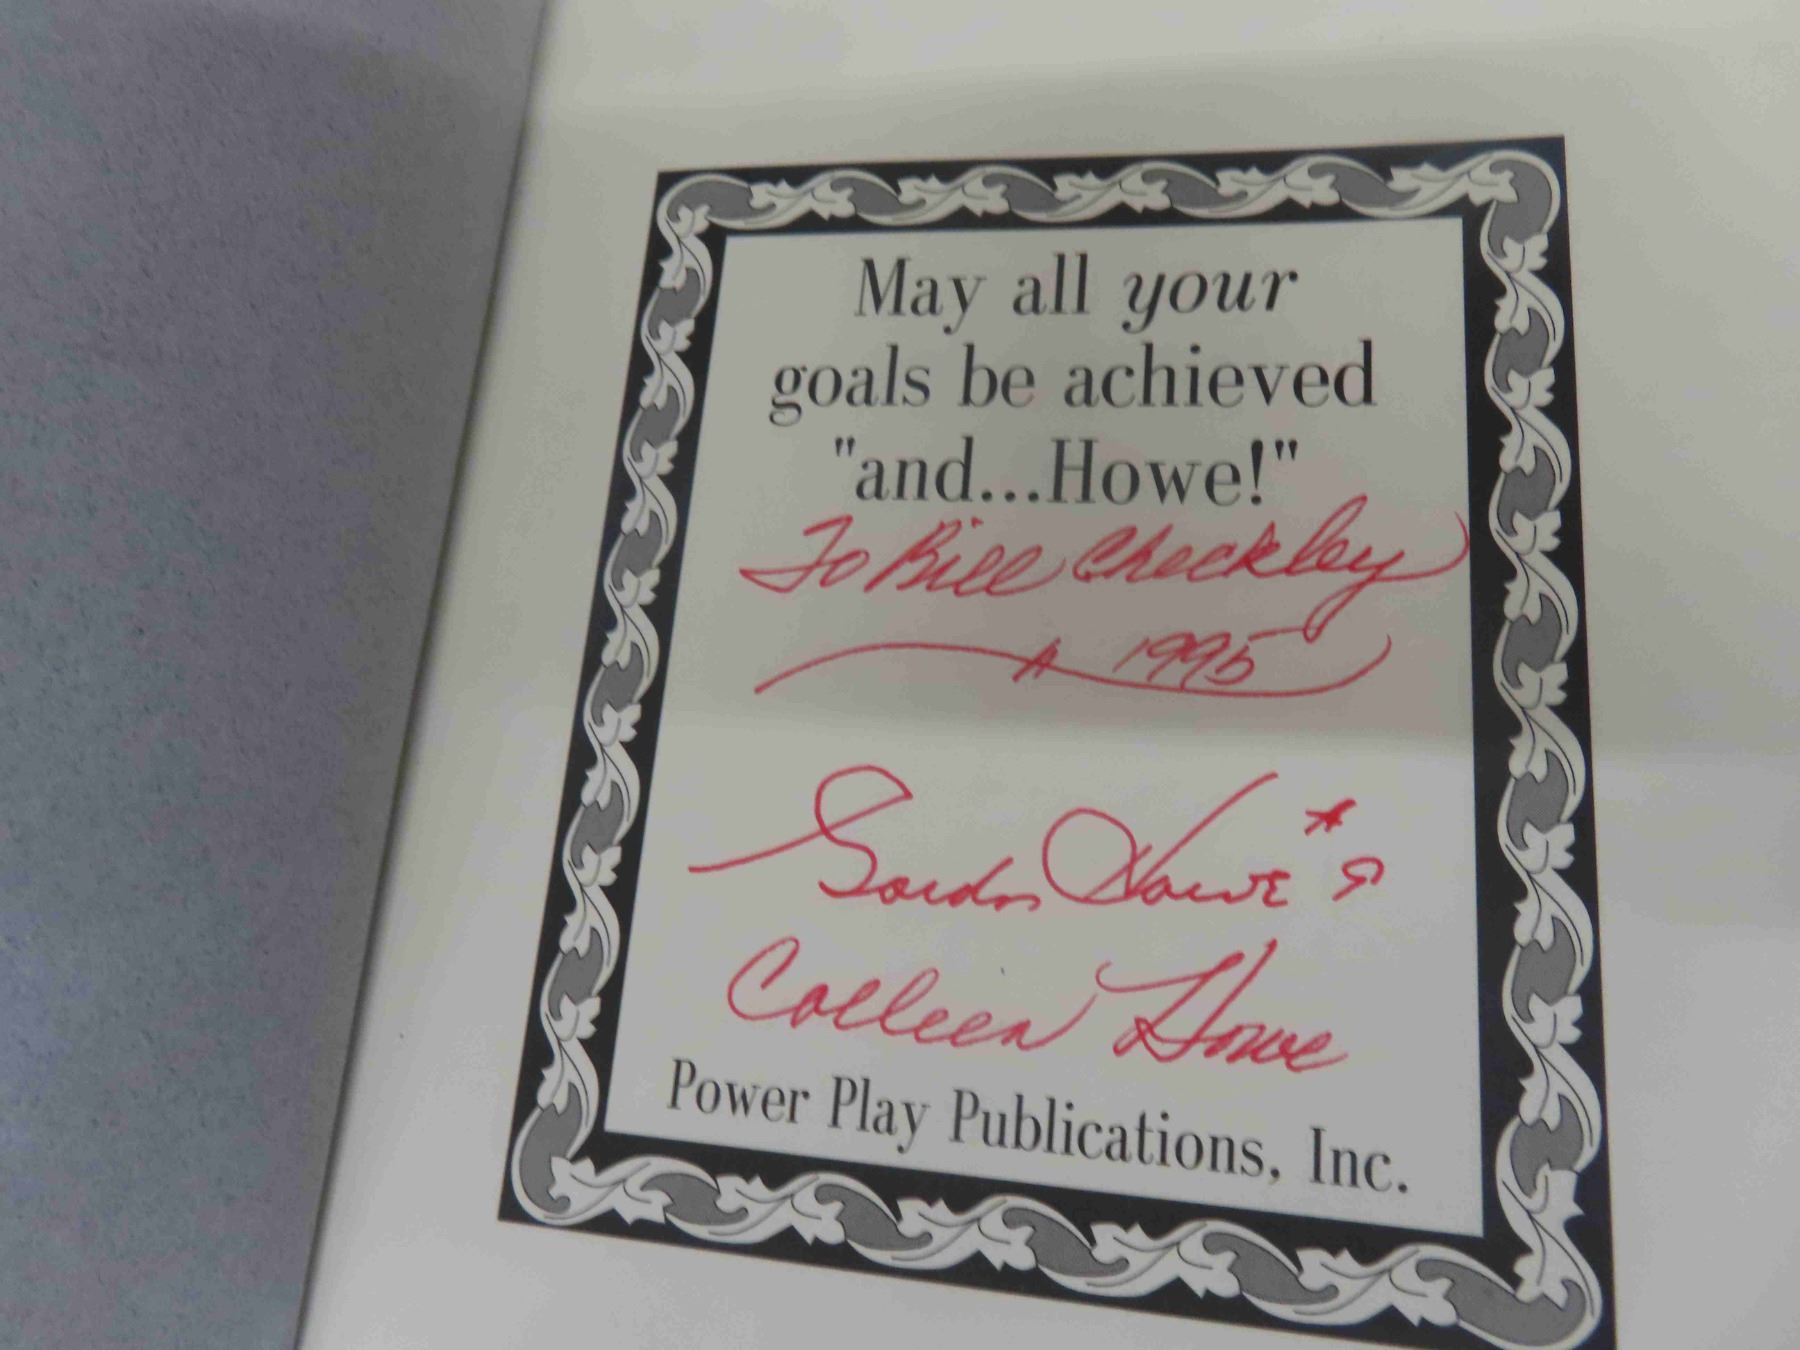 May all your
goals be achieved
"and...Howe!"
To Bill Checkley
1995
Gordon Howe #9
Colleen Howe
Power Play Publications, Inc.